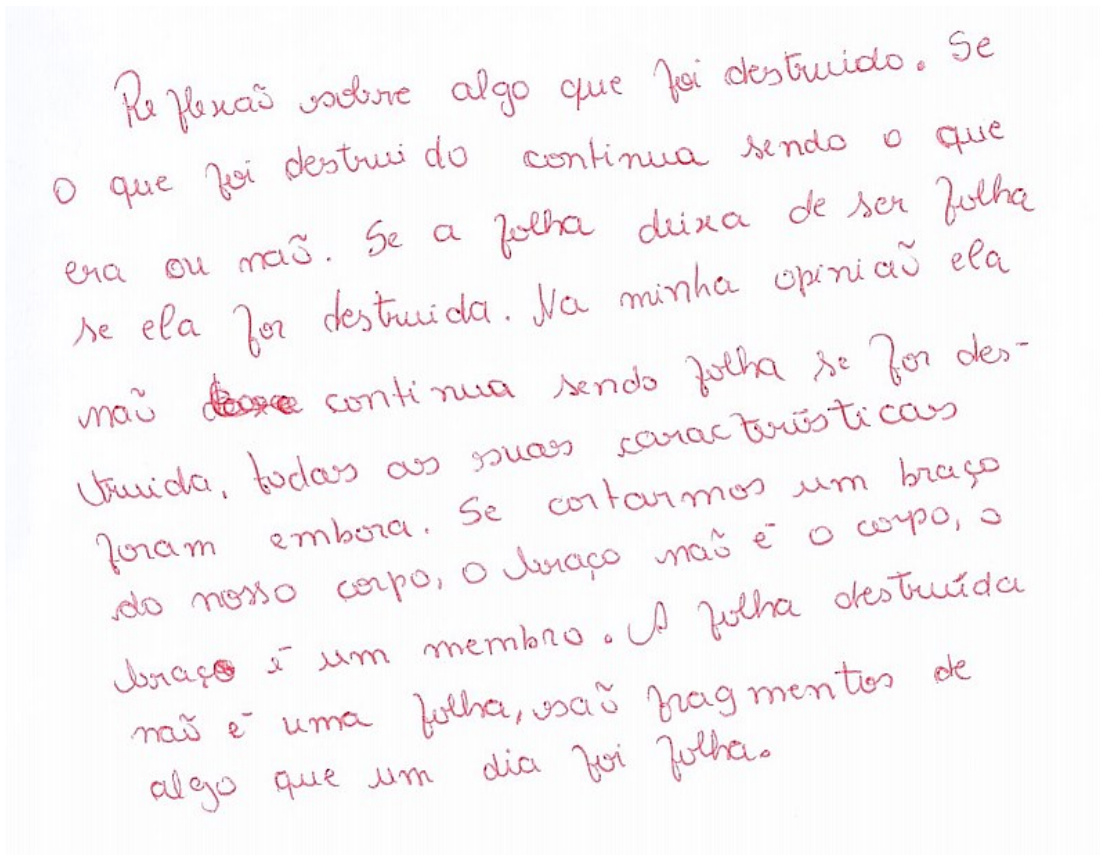 Reflexão sobre algo que foi destruido. Se
o que foi destruido continua sendo o que
era ou não. Se a folha deixa de ser folha
se ela for destruida. Na minha opinião ela
não continua sendo folha se for des-
truida, todas as suas características
foram embora. Se cortarmos um braço
do nosso corpo, o braço não é o corpo, o
braço é um membro. A folha destruída
não é uma folha, são fragmentos de
algo que um dia foi folha.